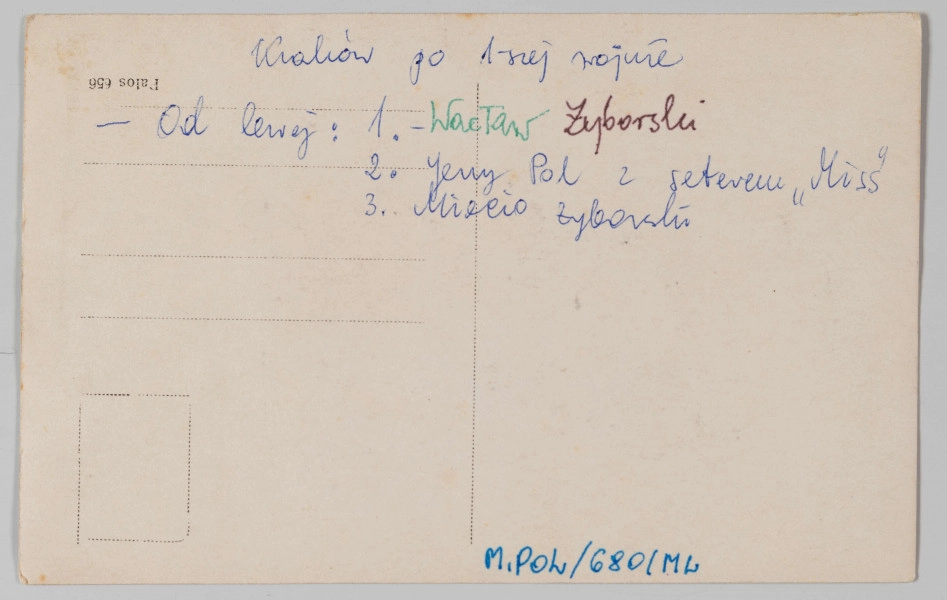 Kraków po 1-szej wojnie
Palos 656
— Od lewej: 1. - Wacław Zyborski
2. Jerzy Pol z seterem „Miss"
3. Miecio Zyborski
M.POL/680/ML